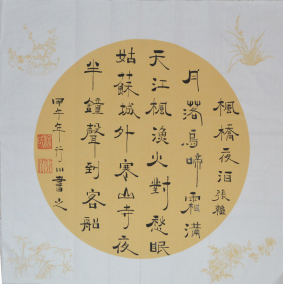 楓橋夜泊 張繼
月落烏啼霜滿
天江楓漁火對愁眠
姑蘇城外寒山寺夜
半鐘聲到客船
甲午年行川書之